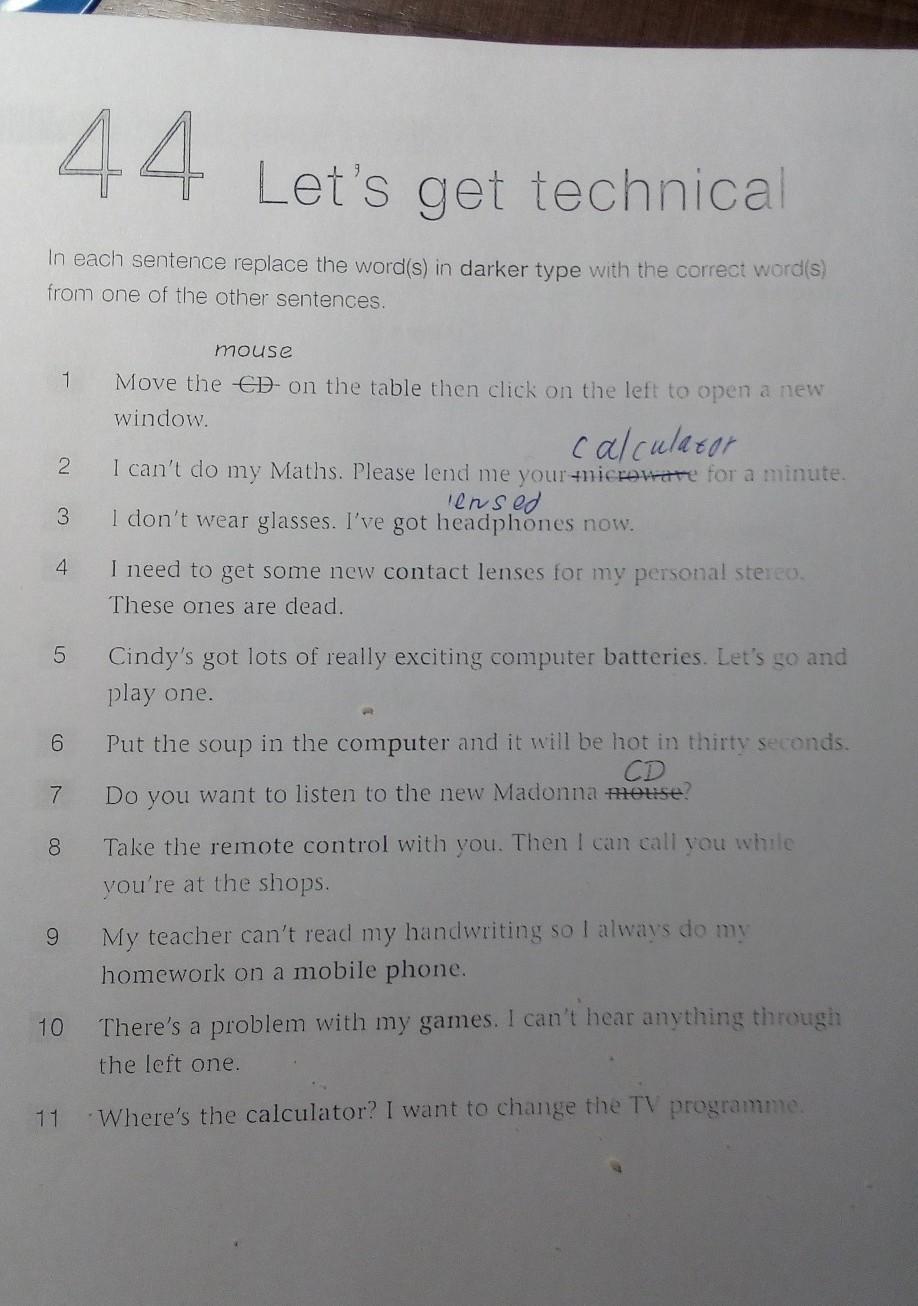 44 Let's get technical
In each sentence replace the word(s) in darker type with the correct word(s)
from one of the other sentences.
mouse
1 Move the CD on the table then click on the left to open a new
window.
calculator
2 I can't do my Maths. Please lend me your microwave for a minute.
lensed
3 I don't wear glasses. I've got headphones now.
4 I need to get some new contact lenses for my personal stereo.
These ones are dead.
5 Cindy's got lots of really exciting computer batteries. Let's go and
play one.
6 Put the soup in the computer and it will be hot in thirty seconds.
CD
7 Do you want to listen to the new Madonna mouse?
8 Take the remote control with you. Then I can call you while
you're at the shops.
9 My teacher can't read my handwriting so I always do my
homework on a mobile phone.
10 There's a problem with my games. I can't hear anything through
the left one.
11 Where's the calculator? I want to change the TV programme.